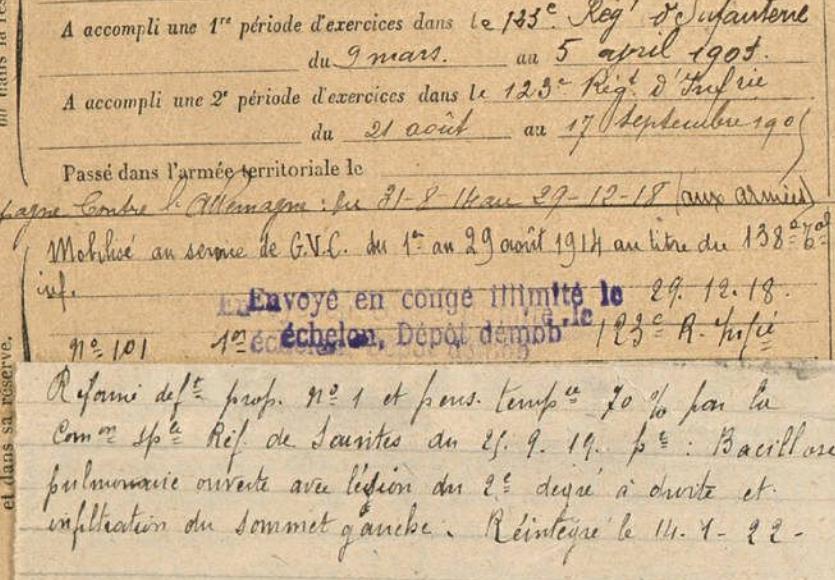 A accompli une 1re période d'exercices dans le 123e Regt d'Infanterie
du 9 mars. au 5 april 1905.
A accompli une 2e période d'exercices dans le 123e Régt d'Infrie
du 21 août au 17 Septembre 190
Passé dans l'armée territoriale le
pagne Contre l'Allemagne : du 31-8-14 au 29-12-18 (aux armées)
Mobilisé au service de G.V.C. du 1er au 29 août 1914 au titre du 138e
inf.
Envoyé en congé illimité le 29.12.18.
n° 101 1er échelon, Dépôt démob 123e R.
et dans sa réserve.
Réformé deft prop. n° 1 et pens. tempre 70 % par la
Comon sple Réf. de Saintes du 25.9.19. pr : Bacillose
pulmonaire ouverte avec lésion du 2e degré à droite et
infiltration du sommet gauche. Réintégré le 14-1-22-